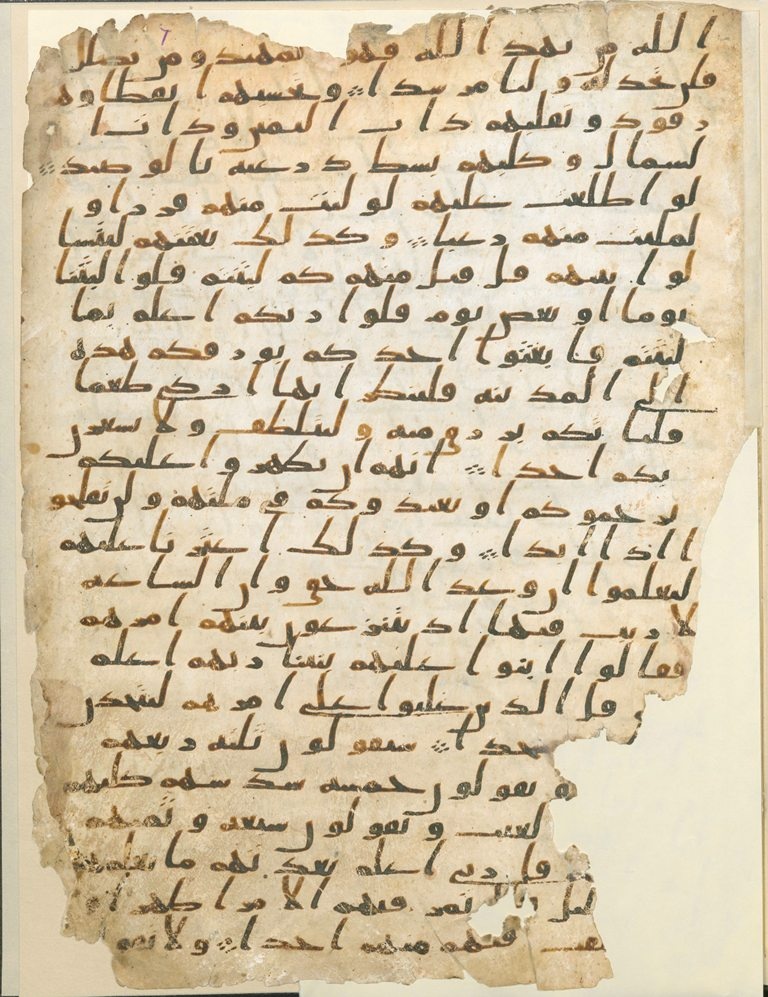 الله من يهد الله فهو المهتد ومن يضلل
فلن تجد له وليا مرشدا وتحسبهم ايقظا وهم
رقود ونقلبهم ذات اليمين وذات ا
لشمال وكلبهم بسط ذرعيه بالوصيد
لو اطلعت عليهم لوليت منهم فررا و
لملئت منهم رعبا وكذلك بعثنهم ليتسا
لوا بينهم قل قئل منهم كم لبثتم قلوا لبثنا
يوما او بعض يوم قلوا ربكم اعلم بما
لبثتم فابعثوا احدكم بورقكم هذه
الى المدينة فلينظر ايها ازكى طعما
فلياتكم برزق منه وليتلطف ولا يشعرن
بكم احدا انهم ان يظهروا عليكم
يرجموكم او يعيدوكم في ملتهم ولن تفلحو
ا اذا ابدا وكذلك اعثرنا عليهم
ليعلموا ان وعد الله حق وان الساعة
لا ريب فيها اذ يتنزعون بينهم امرهم
فقالوا ابنوا عليهم بنينا ربهم اعلم
قل الذين غلبوا على امرهم لنتخذن
جدا سيقولون ثلثة ربعهم
و يقولون خمسة سدسهم كلبهم
لغيب ويقولون سبعة وثمنهم
قل ربي اعلم بعدتهم ما يعلمهم
تمر فيهم الا مرا ظهرا
فيهم منهم احدا ولا تقو